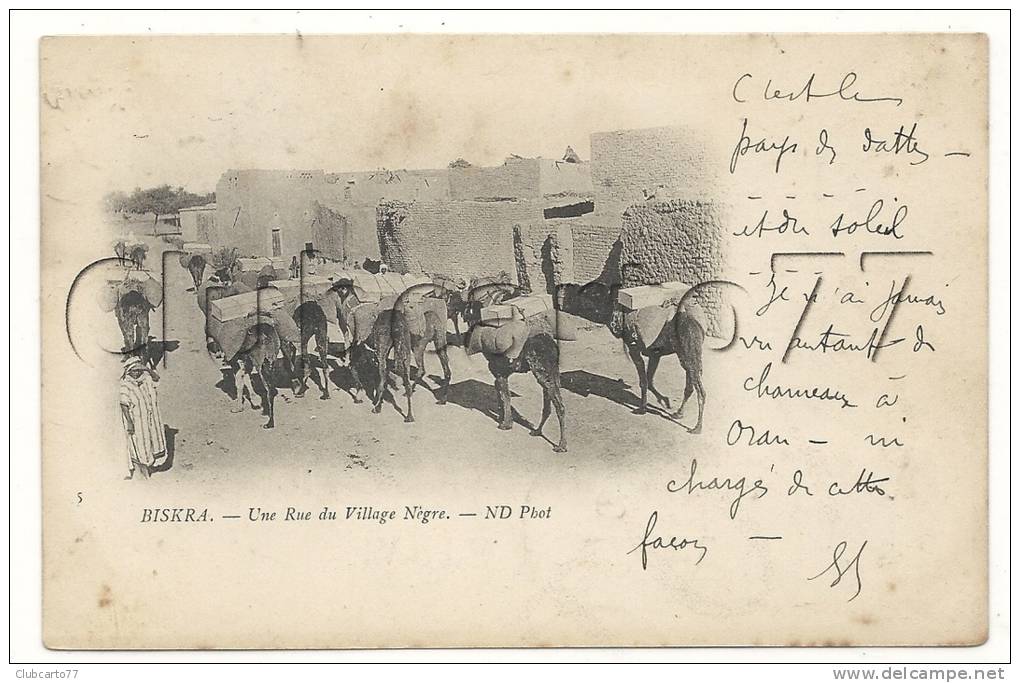 C'est le
pays des dattes —
et du soleil
Je n'ai jamais
vu autant de
chameaux à
Oran — ni
chargés de cette
façon —
5
BISKRA. — Une Rue du Village Nègre. — ND Phot
Clubcarto77
Clubcarto77
www.delcampe.net